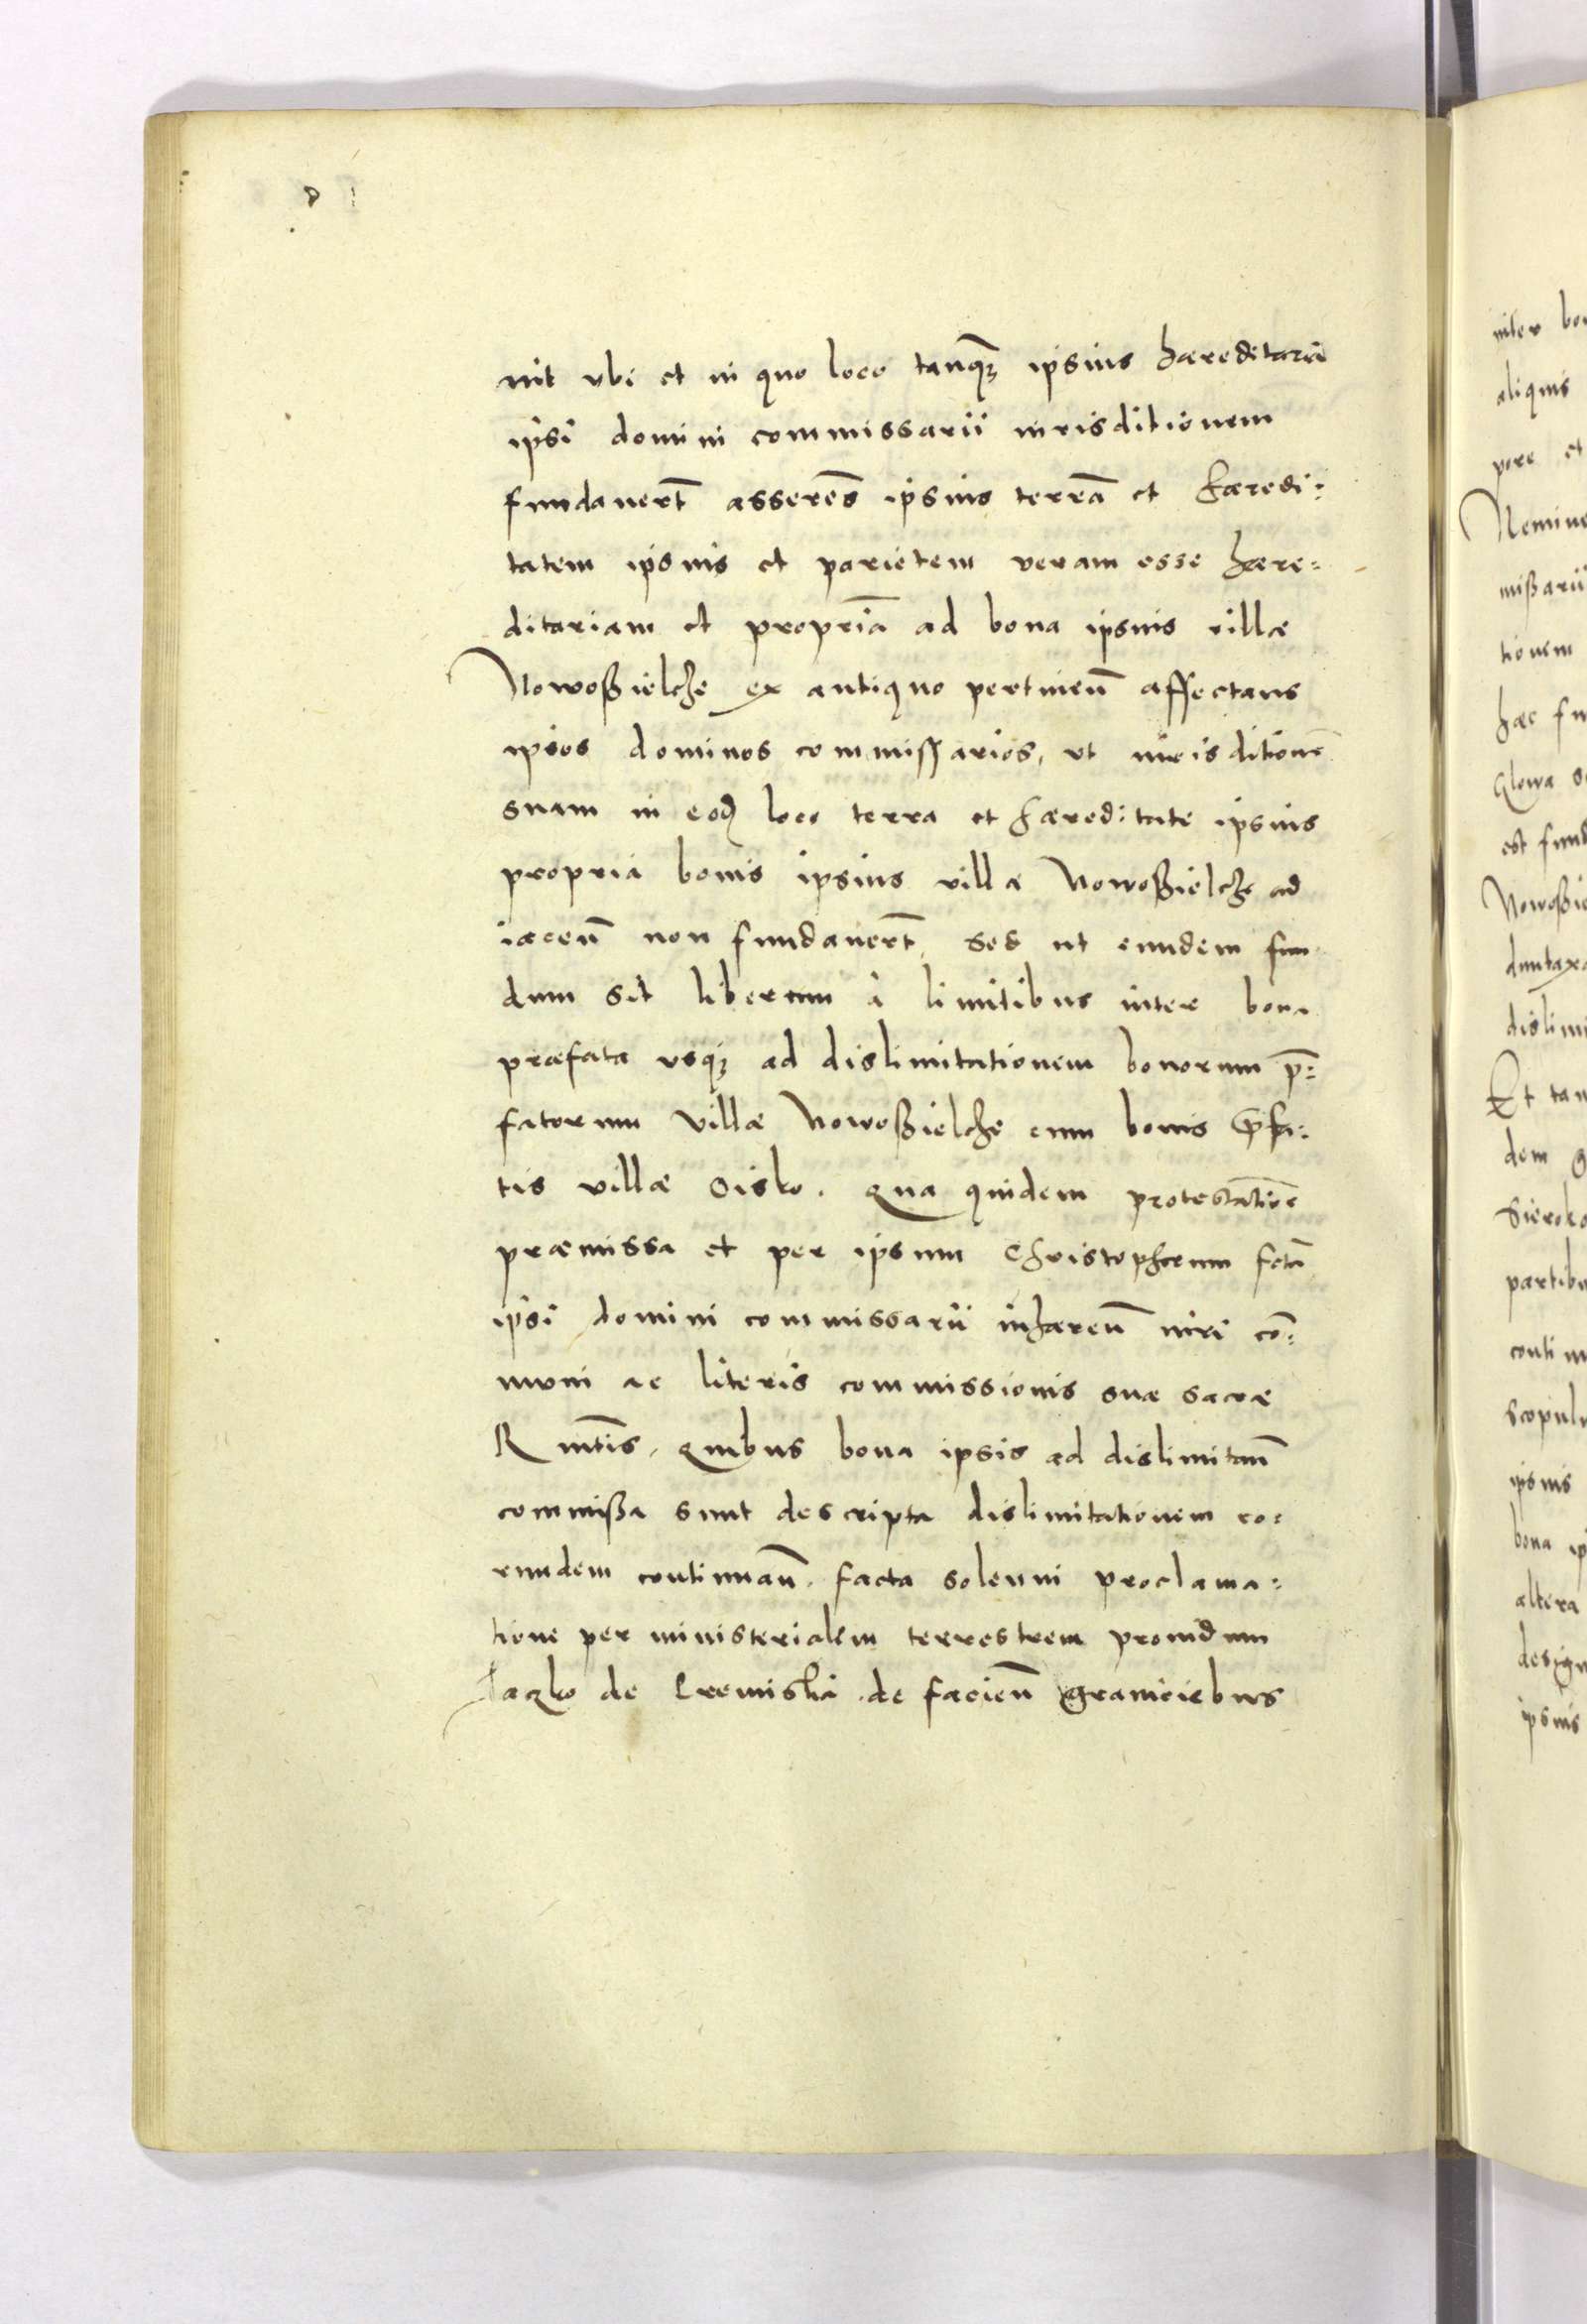 nit ubi et in quo loco tanq̃ꝫ ipsius haereditaria
ipsi domini commissarii iurisditionem
fundauerт̃ asserẽs ipsius terrã et haeredi:
tatem ipsius et parietem veram esse haere:
ditariam et propriã ad bona ipsius villae
Nowoßielcze ex antiquo pertineñ affectans
ipsos dominos commissarios, ut iurisditionẽ
suam in eod loco terra et haereditate ipsius
propria bonis ipsius villae Nowoßielcze ad
iaceñ non fundauerт̃, sed ut eundem fun
dum sit liberum à limitibus inter bona
praefata usqꝫ ad dislimitationem bonorum p̃:
fatorum villae Nowoßielcze cum bonis p̃fa:
tis villae Oisko. Qua quidem protestatione
praemissa et per ipsum Christopherum fctã
ipsi domini commissarii inhaereñ iuri cõ:
muni ac literis commissionis suae sacrae
R mt̃is, quibus bona ipsis ad dislimitañ
commißa sunt descripta dislimitationem eo:
rundem continuañ, facta solenni proclama:
tione per ministerialem terrestrem prouidum
Jaczko de Cremisha de facieñ graniciebus